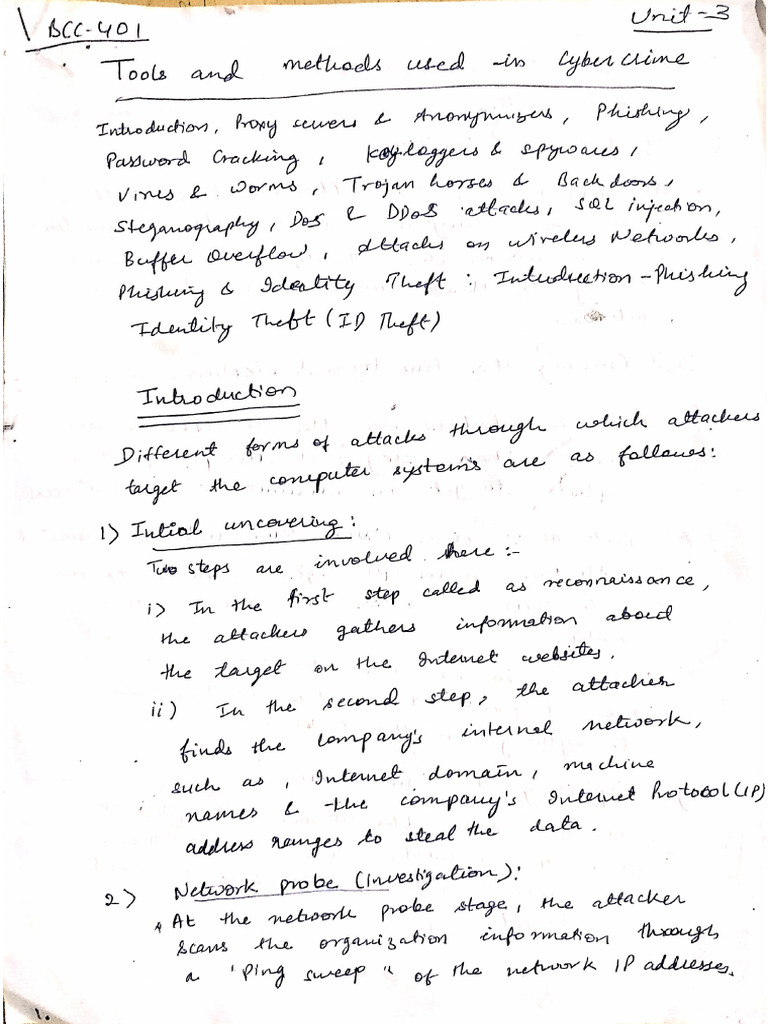 BCC-401
Unit-3
Tools and methods used in Cybercrime
Introduction, Proxy servers & Anonymizers, Phishing,
Password Cracking, Keyloggers & spywares,
Virus & worms, Trojan horses & Backdoors,
Steganography, DoS & DDoS attacks, SQL injection,
Buffer Overflow, Attacks on wireless Networks,
Phishing & Identity Theft : Introduction - Phishing
Identity Theft (ID Theft)
Introduction
Different forms of attacks through which attackers
target the computer systems are as follows:
1) Intial uncovering:
Two steps are involved here :-
i) In the first step called as reconnaissance,
the attackers gathers information about
the target on the Internet websites.
ii) In the second step, the attacker
finds the company's internal network,
such as, Internet domain, machine
names & the company's Internet Protocol (IP)
address ranges to steal the data.
2) Network probe (investigation):
At the network probe stage, the attacker
scans the organization information through
a "Ping sweep" of the network IP addresses.
1.